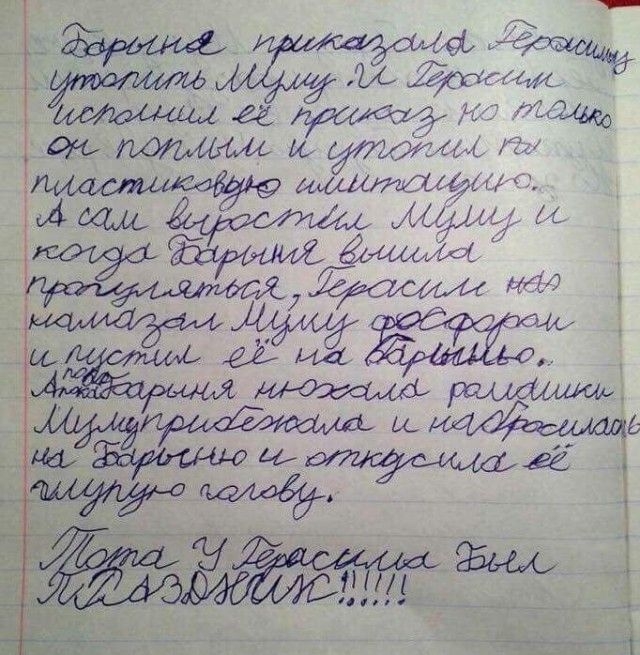 Барыня приказала Герасиму
утопить Муму. И Герасим
исполнил её приказ но только
он поплыл и утопил
пластиковою имитацию.
А сам выростил Муму и
когда Барыня вышла
прогуляться, Герасим
намазал Муму фосфором
и пустил её на Барыню.
А пока Барыня нюхала ромашки
Муму прибежала и набросилась
на Барыню и откусила её
глупую голову.
Тота У Герасима Был
ПРАЗДНИК!!!!!!